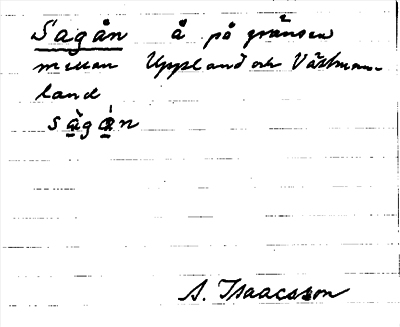 Sagån å på gränsen
mellan Uppland och Västman-
land
sàgån
A. Isaacsson